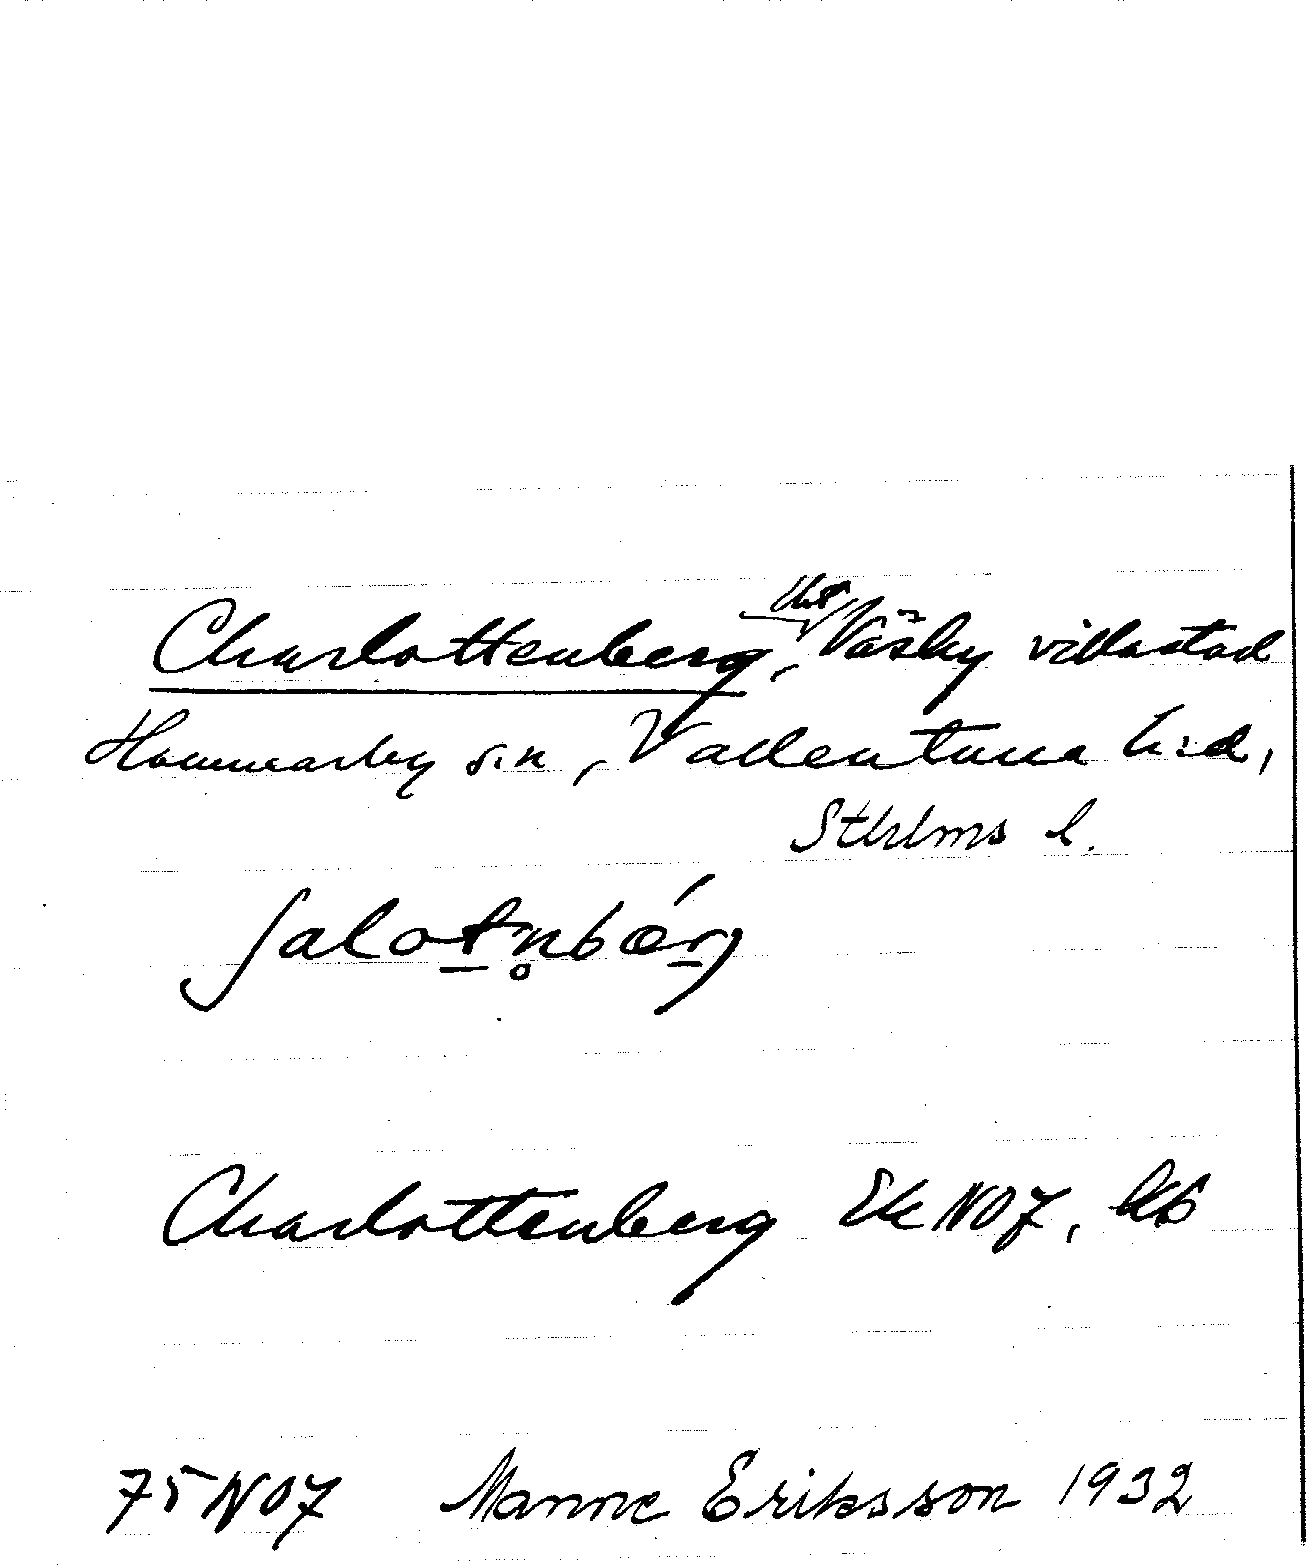 Charlottenberg, Väsby villastad
Hammarby sn, Vallentuna hd,
Sthlms l.
ʃalot̠n̥bær̠j
Charlottenberg Ek NO7, kb
75 NO7 Manne Eriksson 1932